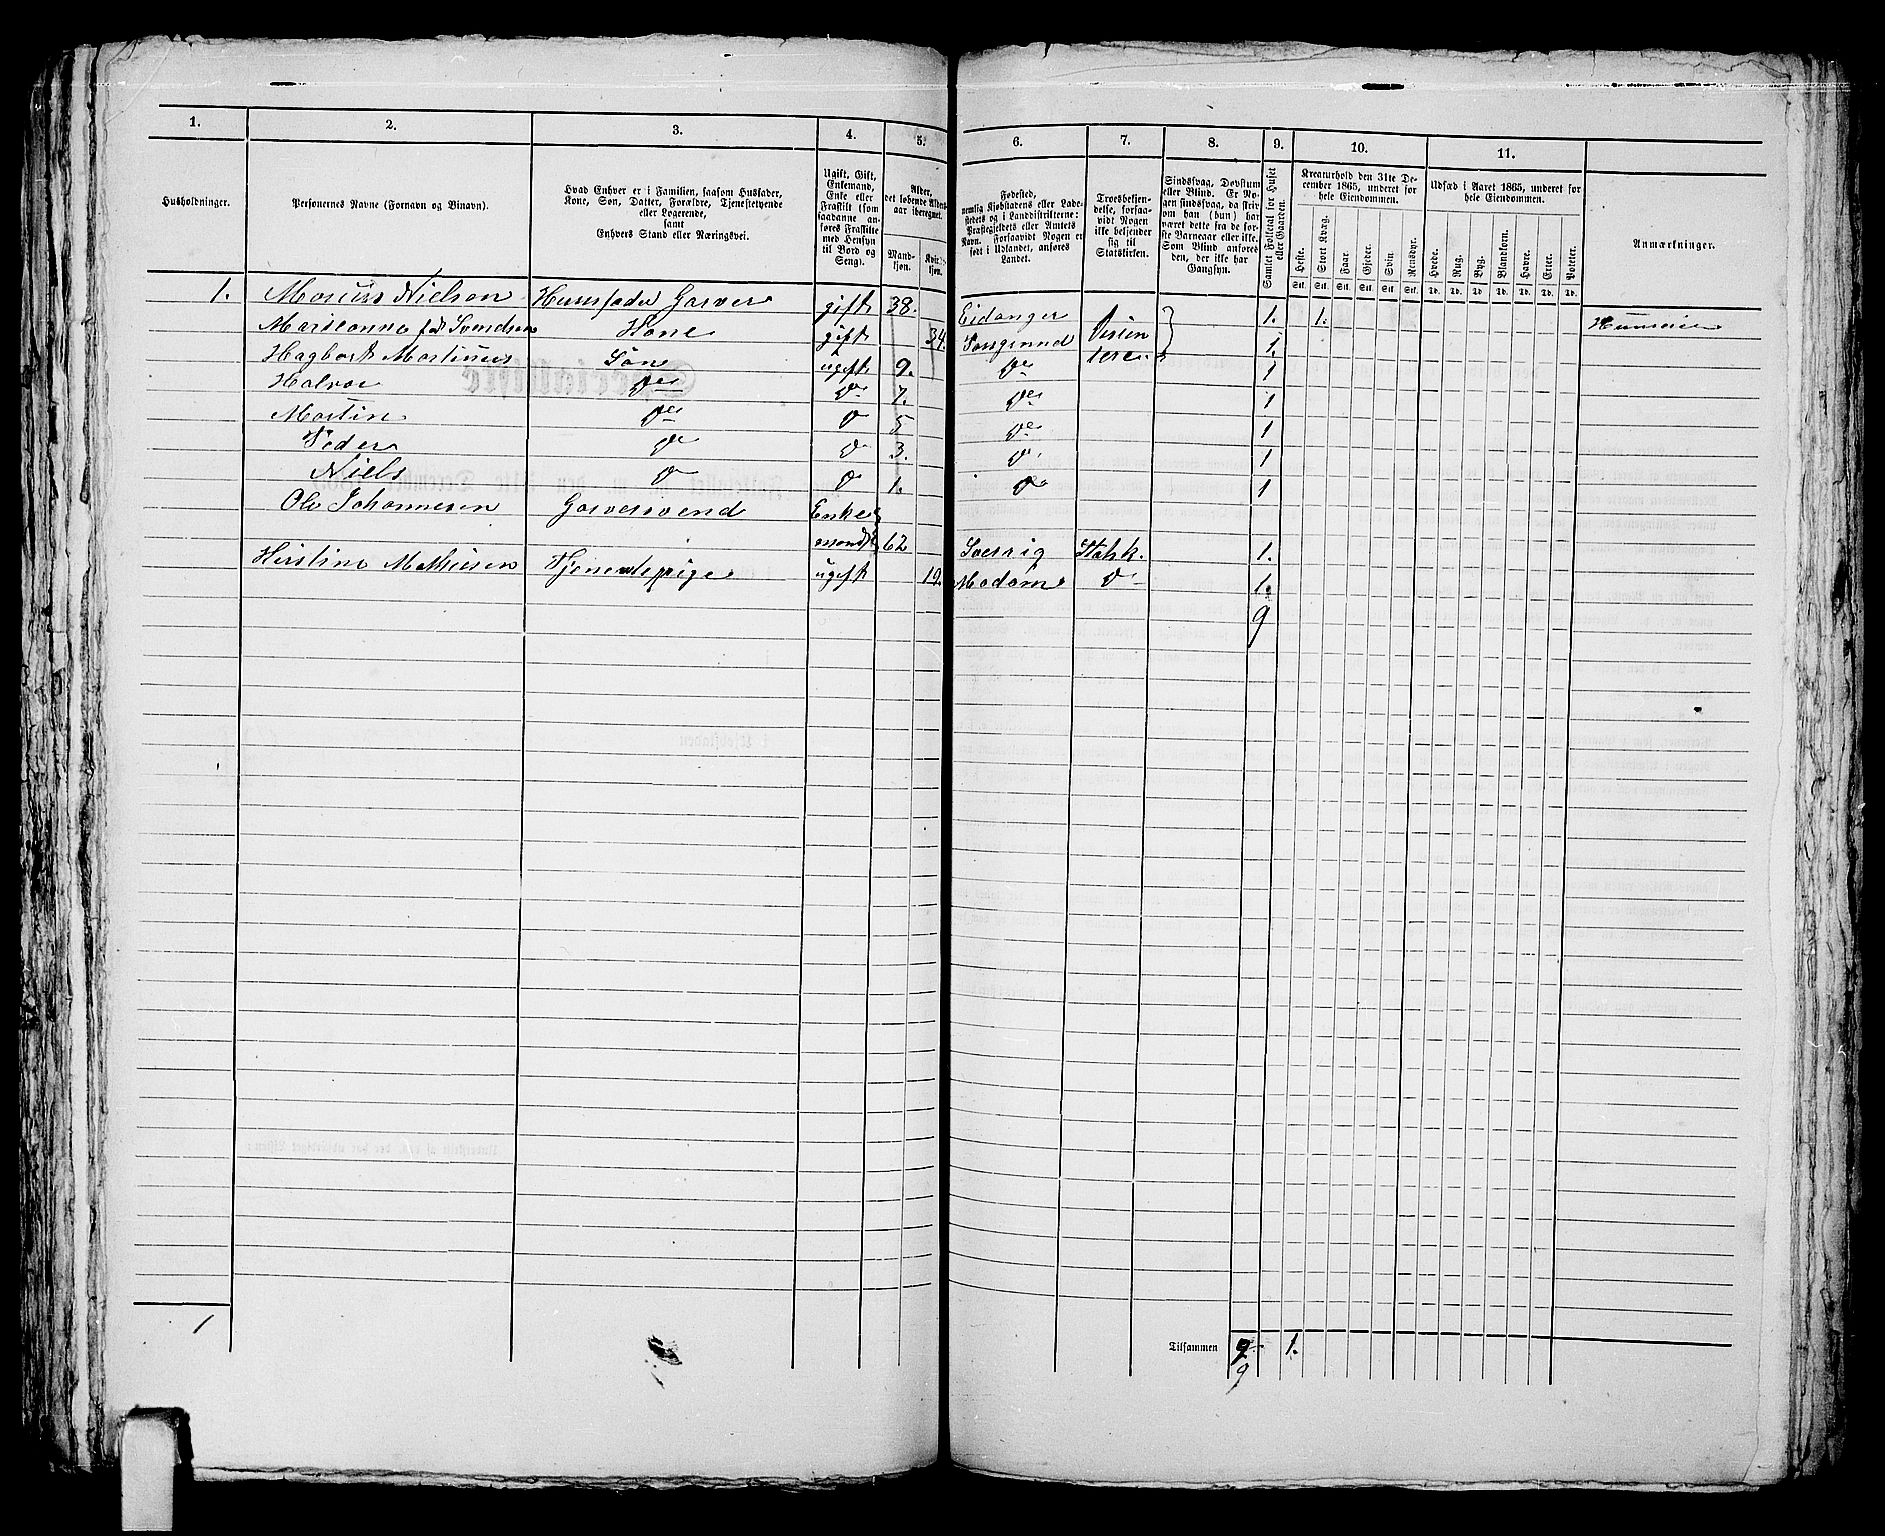 1. 2. 3. 4. 5. 6. 7. 8. 9. 10. 11.
Husholdninger.
Personernes Navne (Fornavn og Binavn).
Hvad Enhver er i Familien, saasom Husfader,
Kone, Søn, Datter, Forældre, Tjenestetyende
eller Logerende,
samt
Enhvers Stand eller Næringsvei.
Ugift, Gift,
Enkemand,
Enke eller
Fraskilt (som
saadanne an-
føres Fraskilte
med Hensyn
til Bord og
Seng).
Alder,
det løbende Alders-
aar iberegnet.
Mand-
kjøn.
Kvin-
kjøn.
Fødested,
nemlig Kjøbstadens eller Lade-
stedets og i Landdistrikterne:
Præstegjeldets eller Amtets
Navn. Forsaavidt Nogen er
født i Udlandet, anføres
Landet.
Troesbekjen-
delse, forsaa-
vidt Nogen
ikke bekjender
sig til
Statskirken.
Sindssvag, Døvstum
eller Blind. Er No-
gen sindssvag, da skriv
om han (hun) har
været dette fra de før-
ste Barneaar eller ikke.
Som Blind anføres
den, der ikke har
Gangsyn.
Samlet Folketal for Huset
eller Gaarden.
Kreaturhold den 31te De-
cember 1865, underet for
hele Eiendommen.
Heste. Stort Kvæg. Faar. Gjeder. Svin. Rensdyr.
Stk. Stk. Stk. Stk. Stk. Stk.
Udsæd i Aaret 1865, underet for
hele Eiendommen.
Hvede. Rug. Byg. Blandkorn. Havre. Erter. Poteter.
Td. Td. Td. Td. Td. Td. Td.
Anmærkninger.
1. Nielsen Huusfader Garver gift 38. Eidanger 1. 1. Huuseier
Svendsen Kone gift 34. Porsgrund 1.
Hagbart Martinus Søn ugift 9. 1
Halvor Do 7. 1
Martin Do 5 1
Peder Do 3. 1
Niels 1. 1
Ole Johannesen Garversvend Enke
mand 62 Sverrig Statsk. 1.
Kirstine Mathiesen Tjenestepige ugift 19. 1.
9
1
Tilsammen 9 1.
9